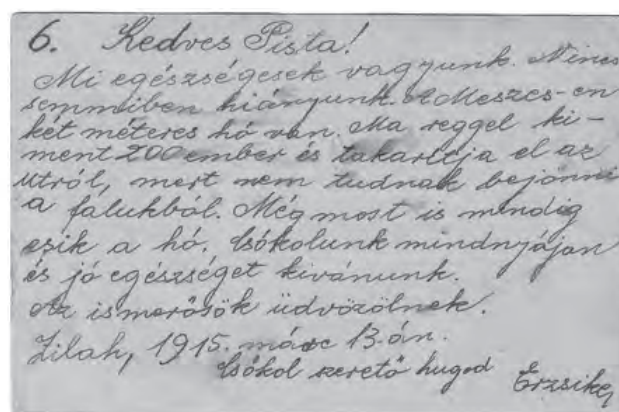 6. Kedves Pista!
Mi egészségesek vagyunk. Nincs
semmiben hiányunk. A Meszes-en
két méteres hó van. Ma reggel ki-
ment 200 ember és takaritja el az
útról, mert nem tudnak bejönni
a falukból. Még most is mindig
esik a hó. Csókolunk mindnyájan
és jó egészséget kivánunk.
Az ismerősök üdvözölnek.
Zilah, 1915. márc 13-án.
Csókol szerető hugod Erzsike